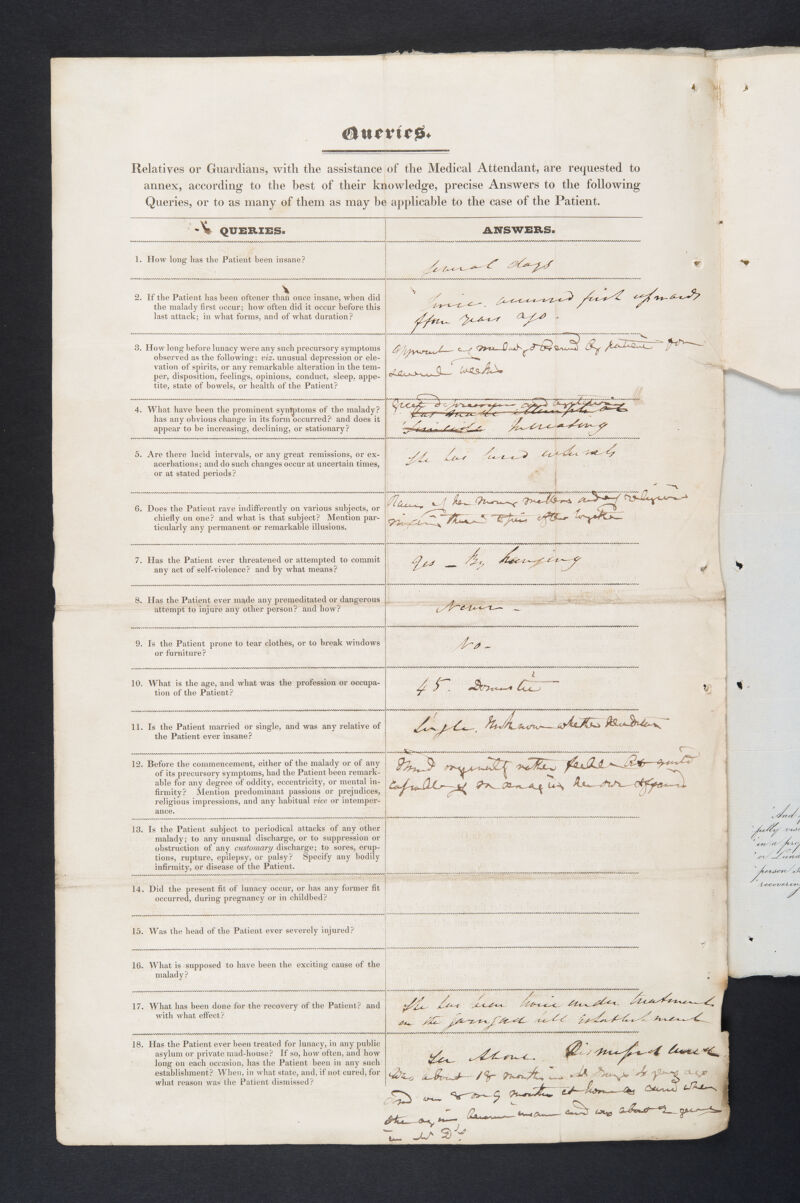 Queries.
Relatives or Guardians, with the assistance of the Medical Attendant, are requested to
annex, according to the best of their knowledge, precise Answers to the following
Queries, or to as many of them as may be applicable to the case of the Patient.
QUERIES.
ANSWERS.
1. How long has the Patient been insane?
Several days
2. If the Patient has been oftener than once insane, when did
the malady first occur; how often did it occur before this
last attack; in what forms, and of what duration?
Twice. occurred first upwards
of four years ago.
3. How long before lunacy were any such precursory symptoms
observed as the following: viz. unusual depression or ele-
vation of spirits, or any remarkable alteration in the tem-
per, disposition, feelings, opinions, conduct, sleep, appe-
tite, state of bowels, or health of the Patient?
by patient for
several weeks
4. What have been the prominent symptoms of the malady?
has any obvious change in its form occurred? and does it
appear to be increasing, declining, or stationary?
Great depression and
attempts at
Suicide Increasing
5. Are there lucid intervals, or any great remissions, or ex-
acerbations; and do such changes occur at uncertain times,
or at stated periods?
She has lucid intervals
6. Does the Patient rave indifferently on various subjects, or
chiefly on one? and what is that subject? Mention par-
ticularly any permanent or remarkable illusions.
Raves of her money matters and of religion
mixing these often together
7. Has the Patient ever threatened or attempted to commit
any act of self-violence? and by what means?
Yes — By hanging
8. Has the Patient ever made any premeditated or dangerous
attempt to injure any other person? and how?
Never –
9. Is the Patient prone to tear clothes, or to break windows
or furniture?
No –
10. What is the age, and what was the profession or occupa-
tion of the Patient?
45. Domestic
11. Is the Patient married or single, and was any relative of
the Patient ever insane?
Single. Unknown whether
12. Before the commencement, either of the malady or of any
of its precursory symptoms, had the Patient been remark-
able for any degree of oddity, eccentricity, or mental in-
firmity? Mention predominant passions or prejudices,
religious impressions, and any habitual vice or intemper-
ance.
Mind originally rather feeble but quite
capable of managing her own affairs
13. Is the Patient subject to periodical attacks of any other
malady; to any unusual discharge, or to suppression or
obstruction of any customary discharge; to sores, erup-
tions, rupture, epilepsy, or palsy? Specify any bodily
infirmity, or disease of the Patient.
14. Did the present fit of lunacy occur, or has any former fit
occurred, during pregnancy or in childbed?
15. Was the head of the Patient ever severely injured?
16. What is supposed to have been the exciting cause of the
malady?
17. What has been done for the recovery of the Patient? and
with what effect?
She has been twice under treatment
in the Garngad hill establishment
18. Has the Patient ever been treated for lunacy, in any public
asylum or private mad-house? If so, how often, and how
long on each occasion, has the Patient been in any such
establishment? When, in what state, and, if not cured, for
what reason was the Patient dismissed?
See Above. Dismissed cured
Was about 18 months in years ago
and was months at home as cured when
she again became insane and was about a year
in